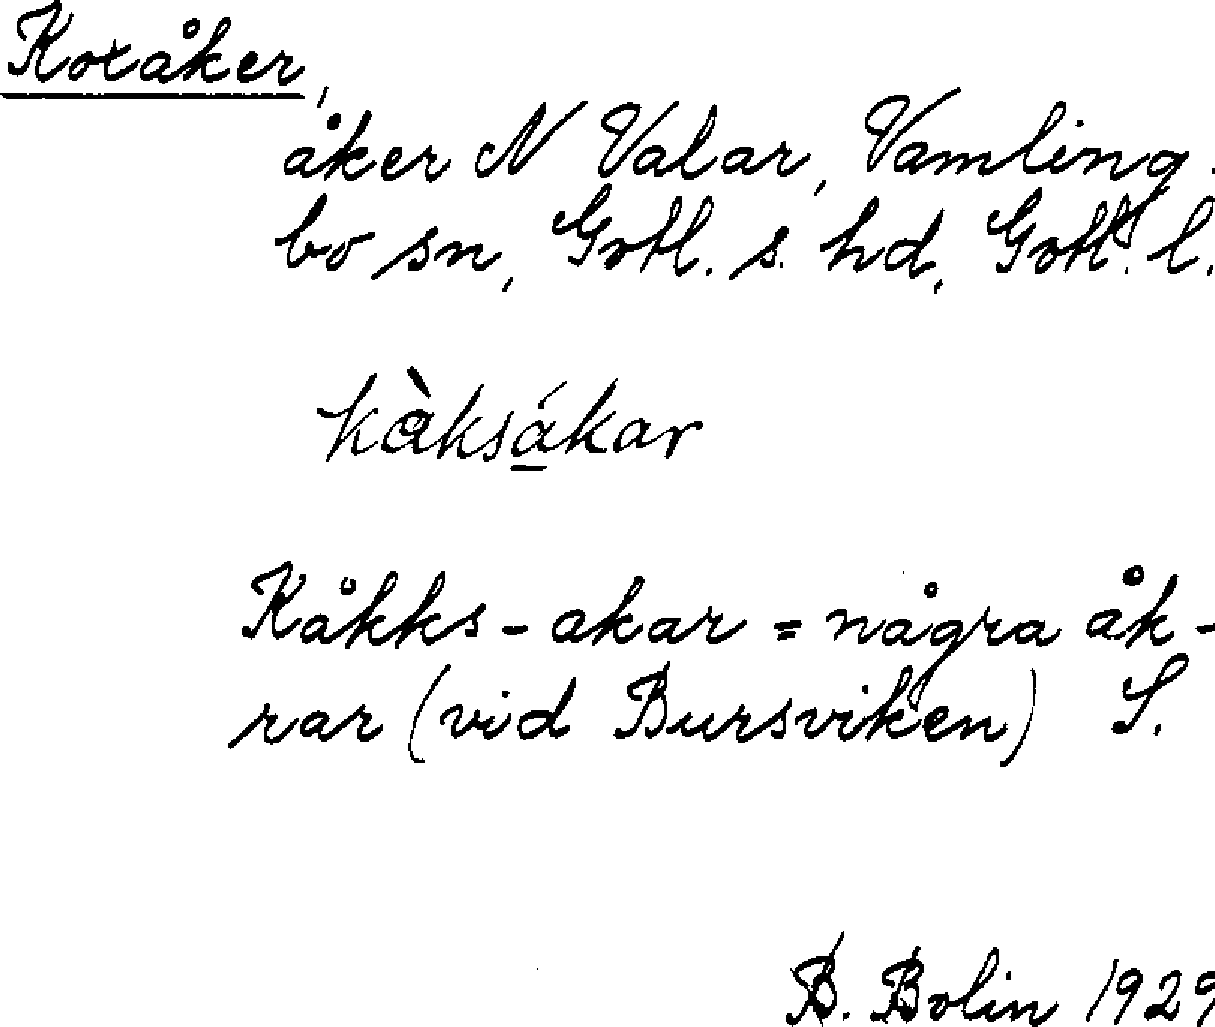 Koxåker,
åker N Valar, Vamling-
bo sn, Gotl. s. hd, Gotl. l.
kàksákar
Kåkks-akar = några åk-
rar (vid Bursviken) S.
B. Bolin 1929